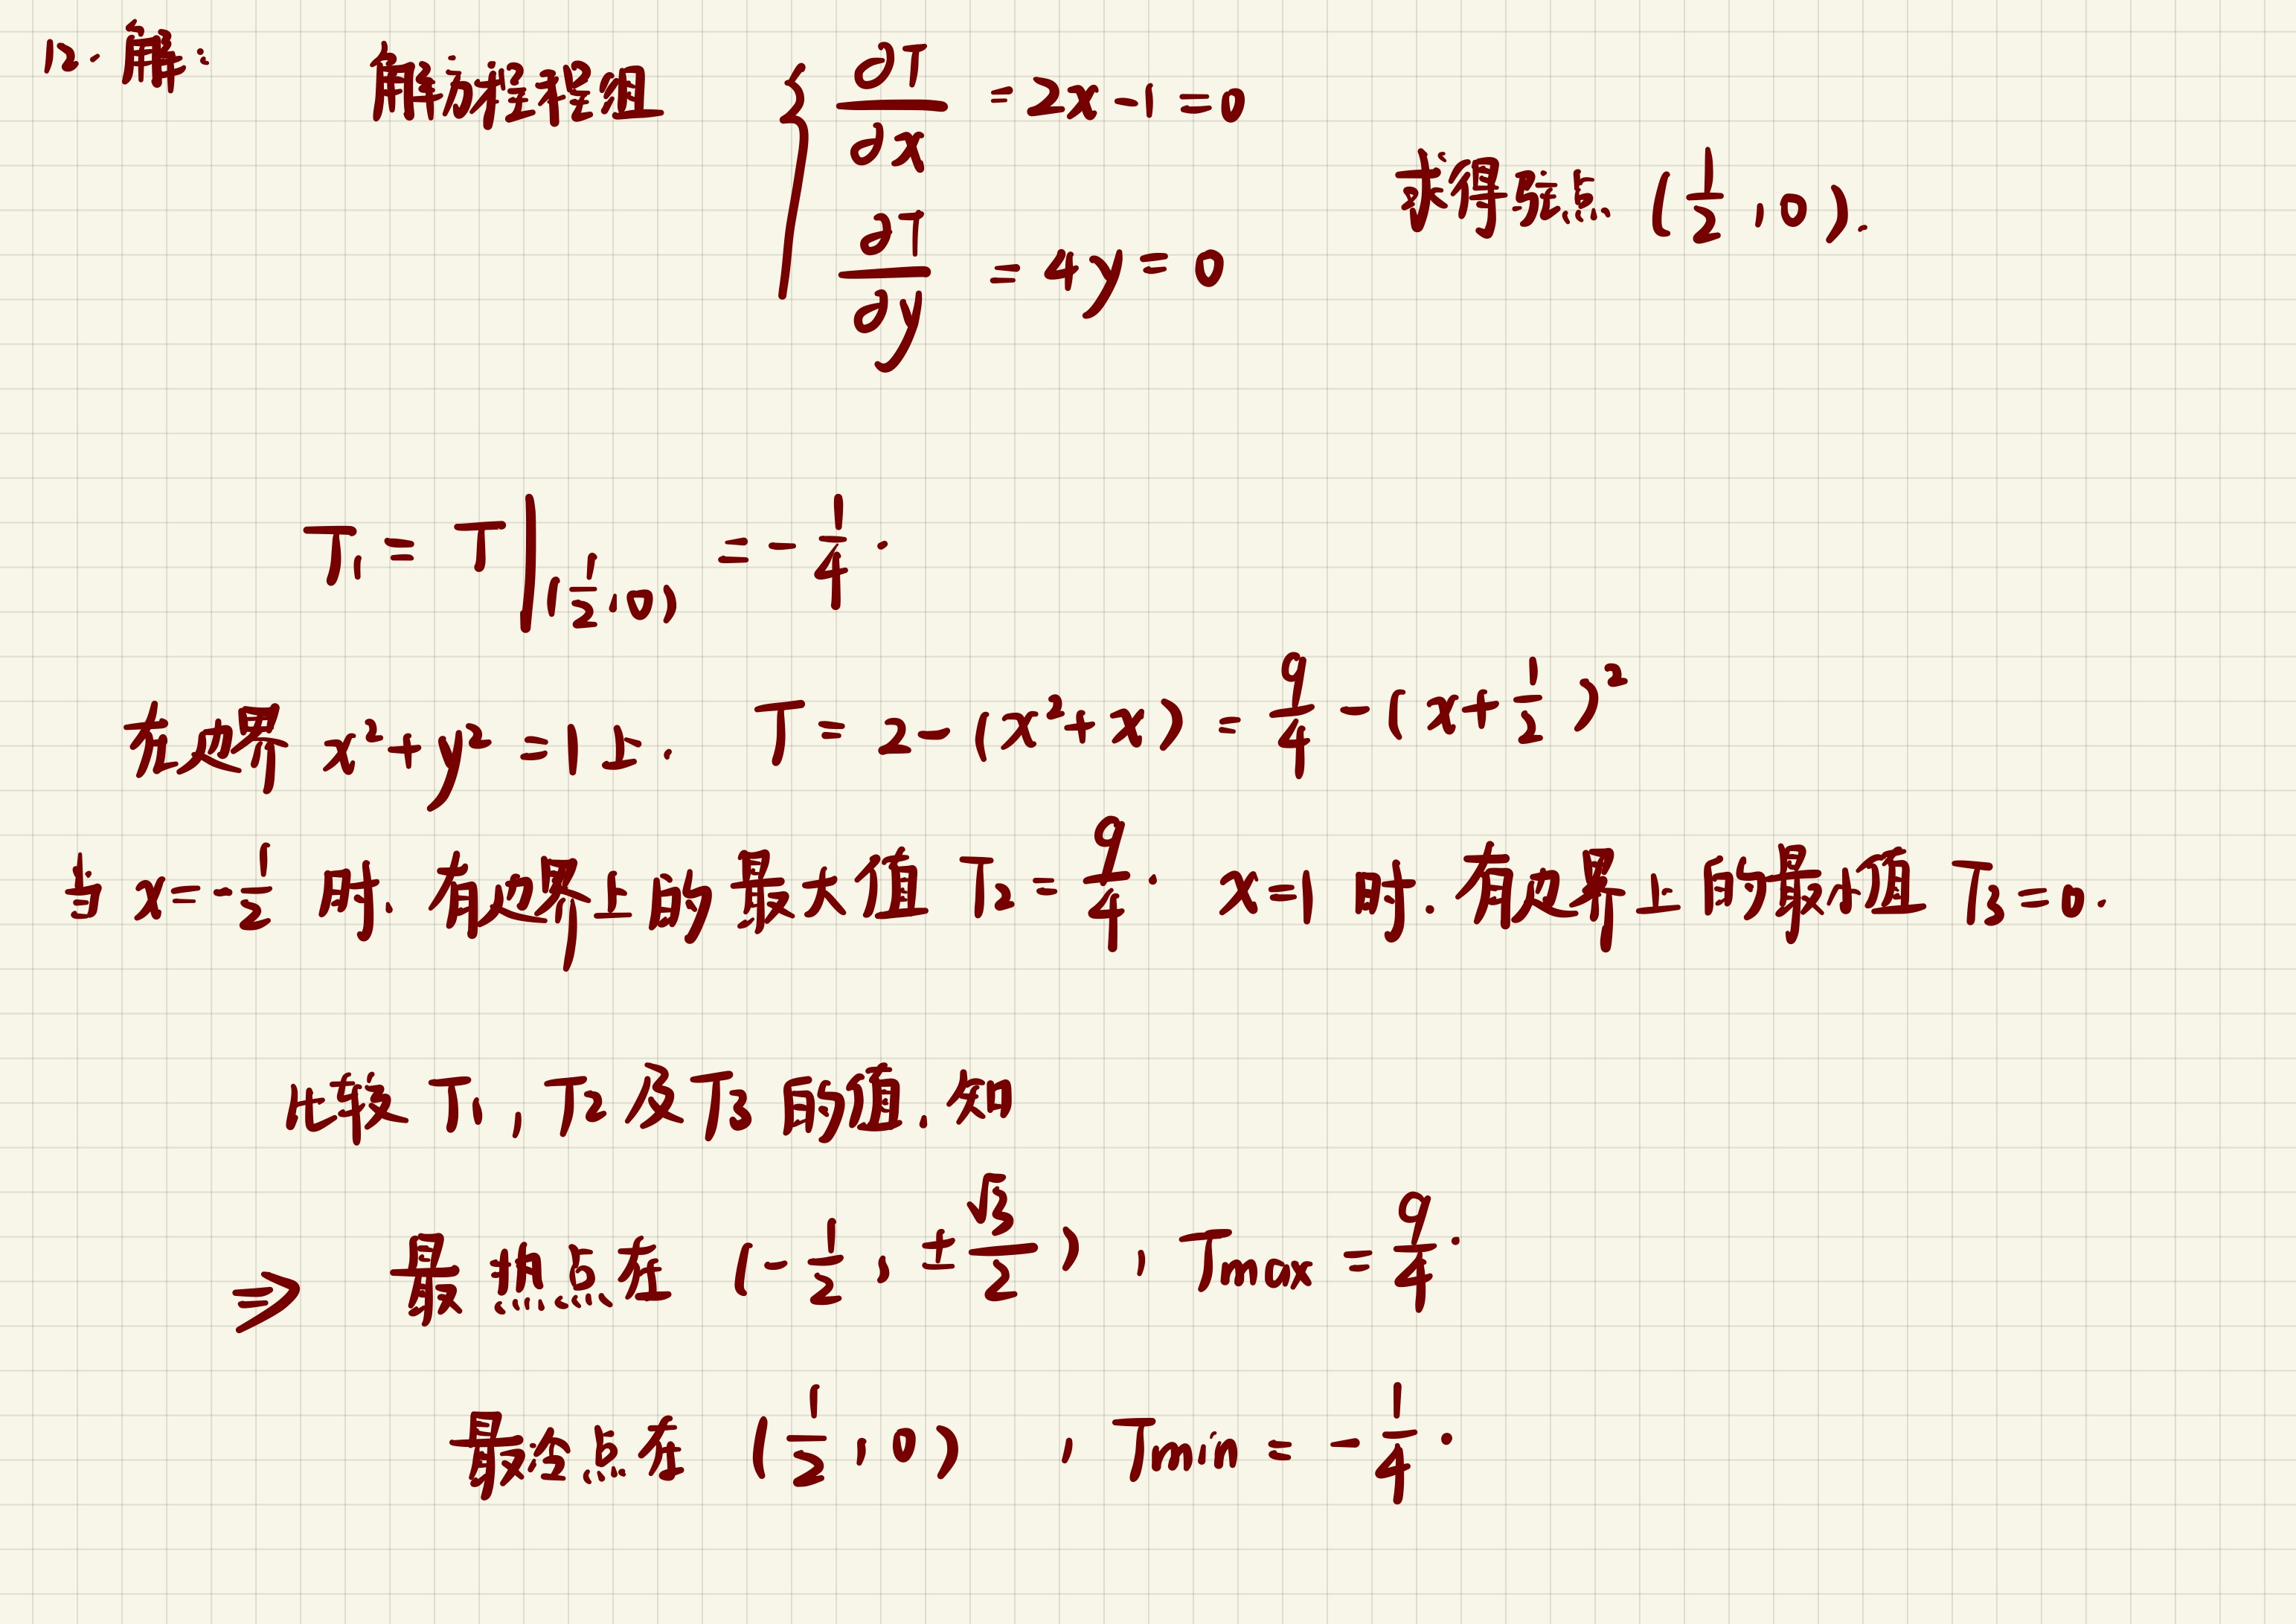 12. 解:
解方程组 { ∂T/∂x = 2x - 1 = 0
∂T/∂y = 4y = 0
求得驻点 (1/2, 0).
T₁ = T|(1/2, 0) = -1/4.
在边界 x² + y² = 1 上. T = 2 - (x² + x) = 9/4 - (x + 1/2)²
当 x = -1/2 时. 有边界上的最大值 T₂ = 9/4. x = 1 时. 有边界上的最小值 T₃ = 0.
比较 T₁, T₂ 及 T₃ 的值, 知
⇒ 最热点在 (-1/2, ±√3/2), Tmax = 9/4.
最冷点在 (1/2, 0), Tmin = -1/4.